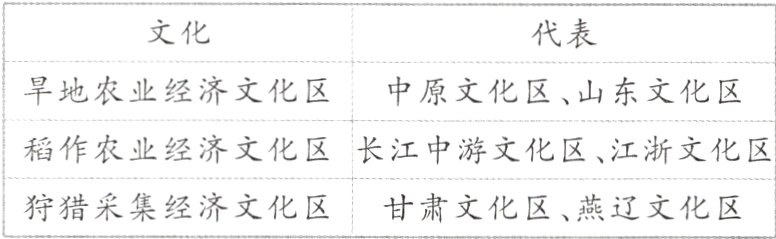 文化 代表
旱地农业经济文化区 中原文化区、山东文化区
稻作农业经济文化区 长江中游文化区、江浙文化区
狩猎采集经济文化区 甘肃文化区、燕辽文化区